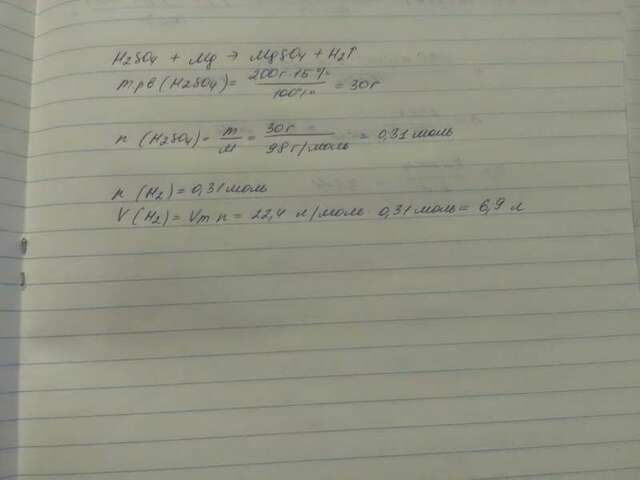 H2SO4 + Mg → MgSO4 + H2↑
m р.в (H2SO4) = 200г · 15% / 100% = 30г
n (H2SO4) = m / M = 30г / 98 г/моль = 0,31 моль
n (H2) = 0,31 моль
V (H2) = Vm n = 22,4 л/моль · 0,31 моль = 6,9 л